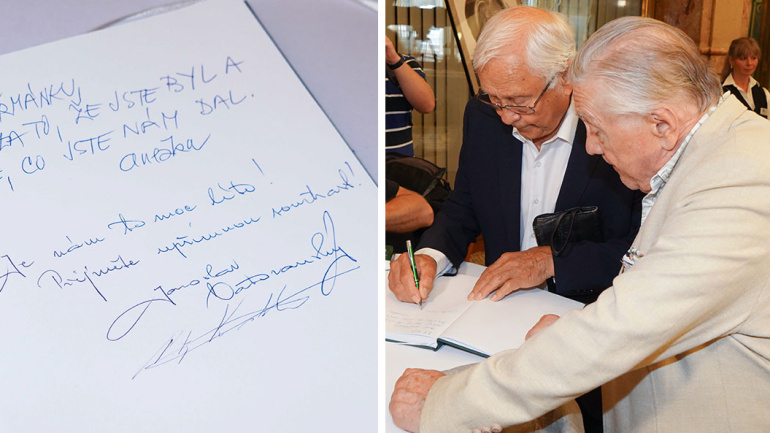 RMÁNKU,
ZA TO, ŽE JSTE BYLA
, CO JSTE NÁM DAL.
anežka
Je nám to moc líto!
Prijměte upřímnou soustrast!
Jaroslav
Satoranský